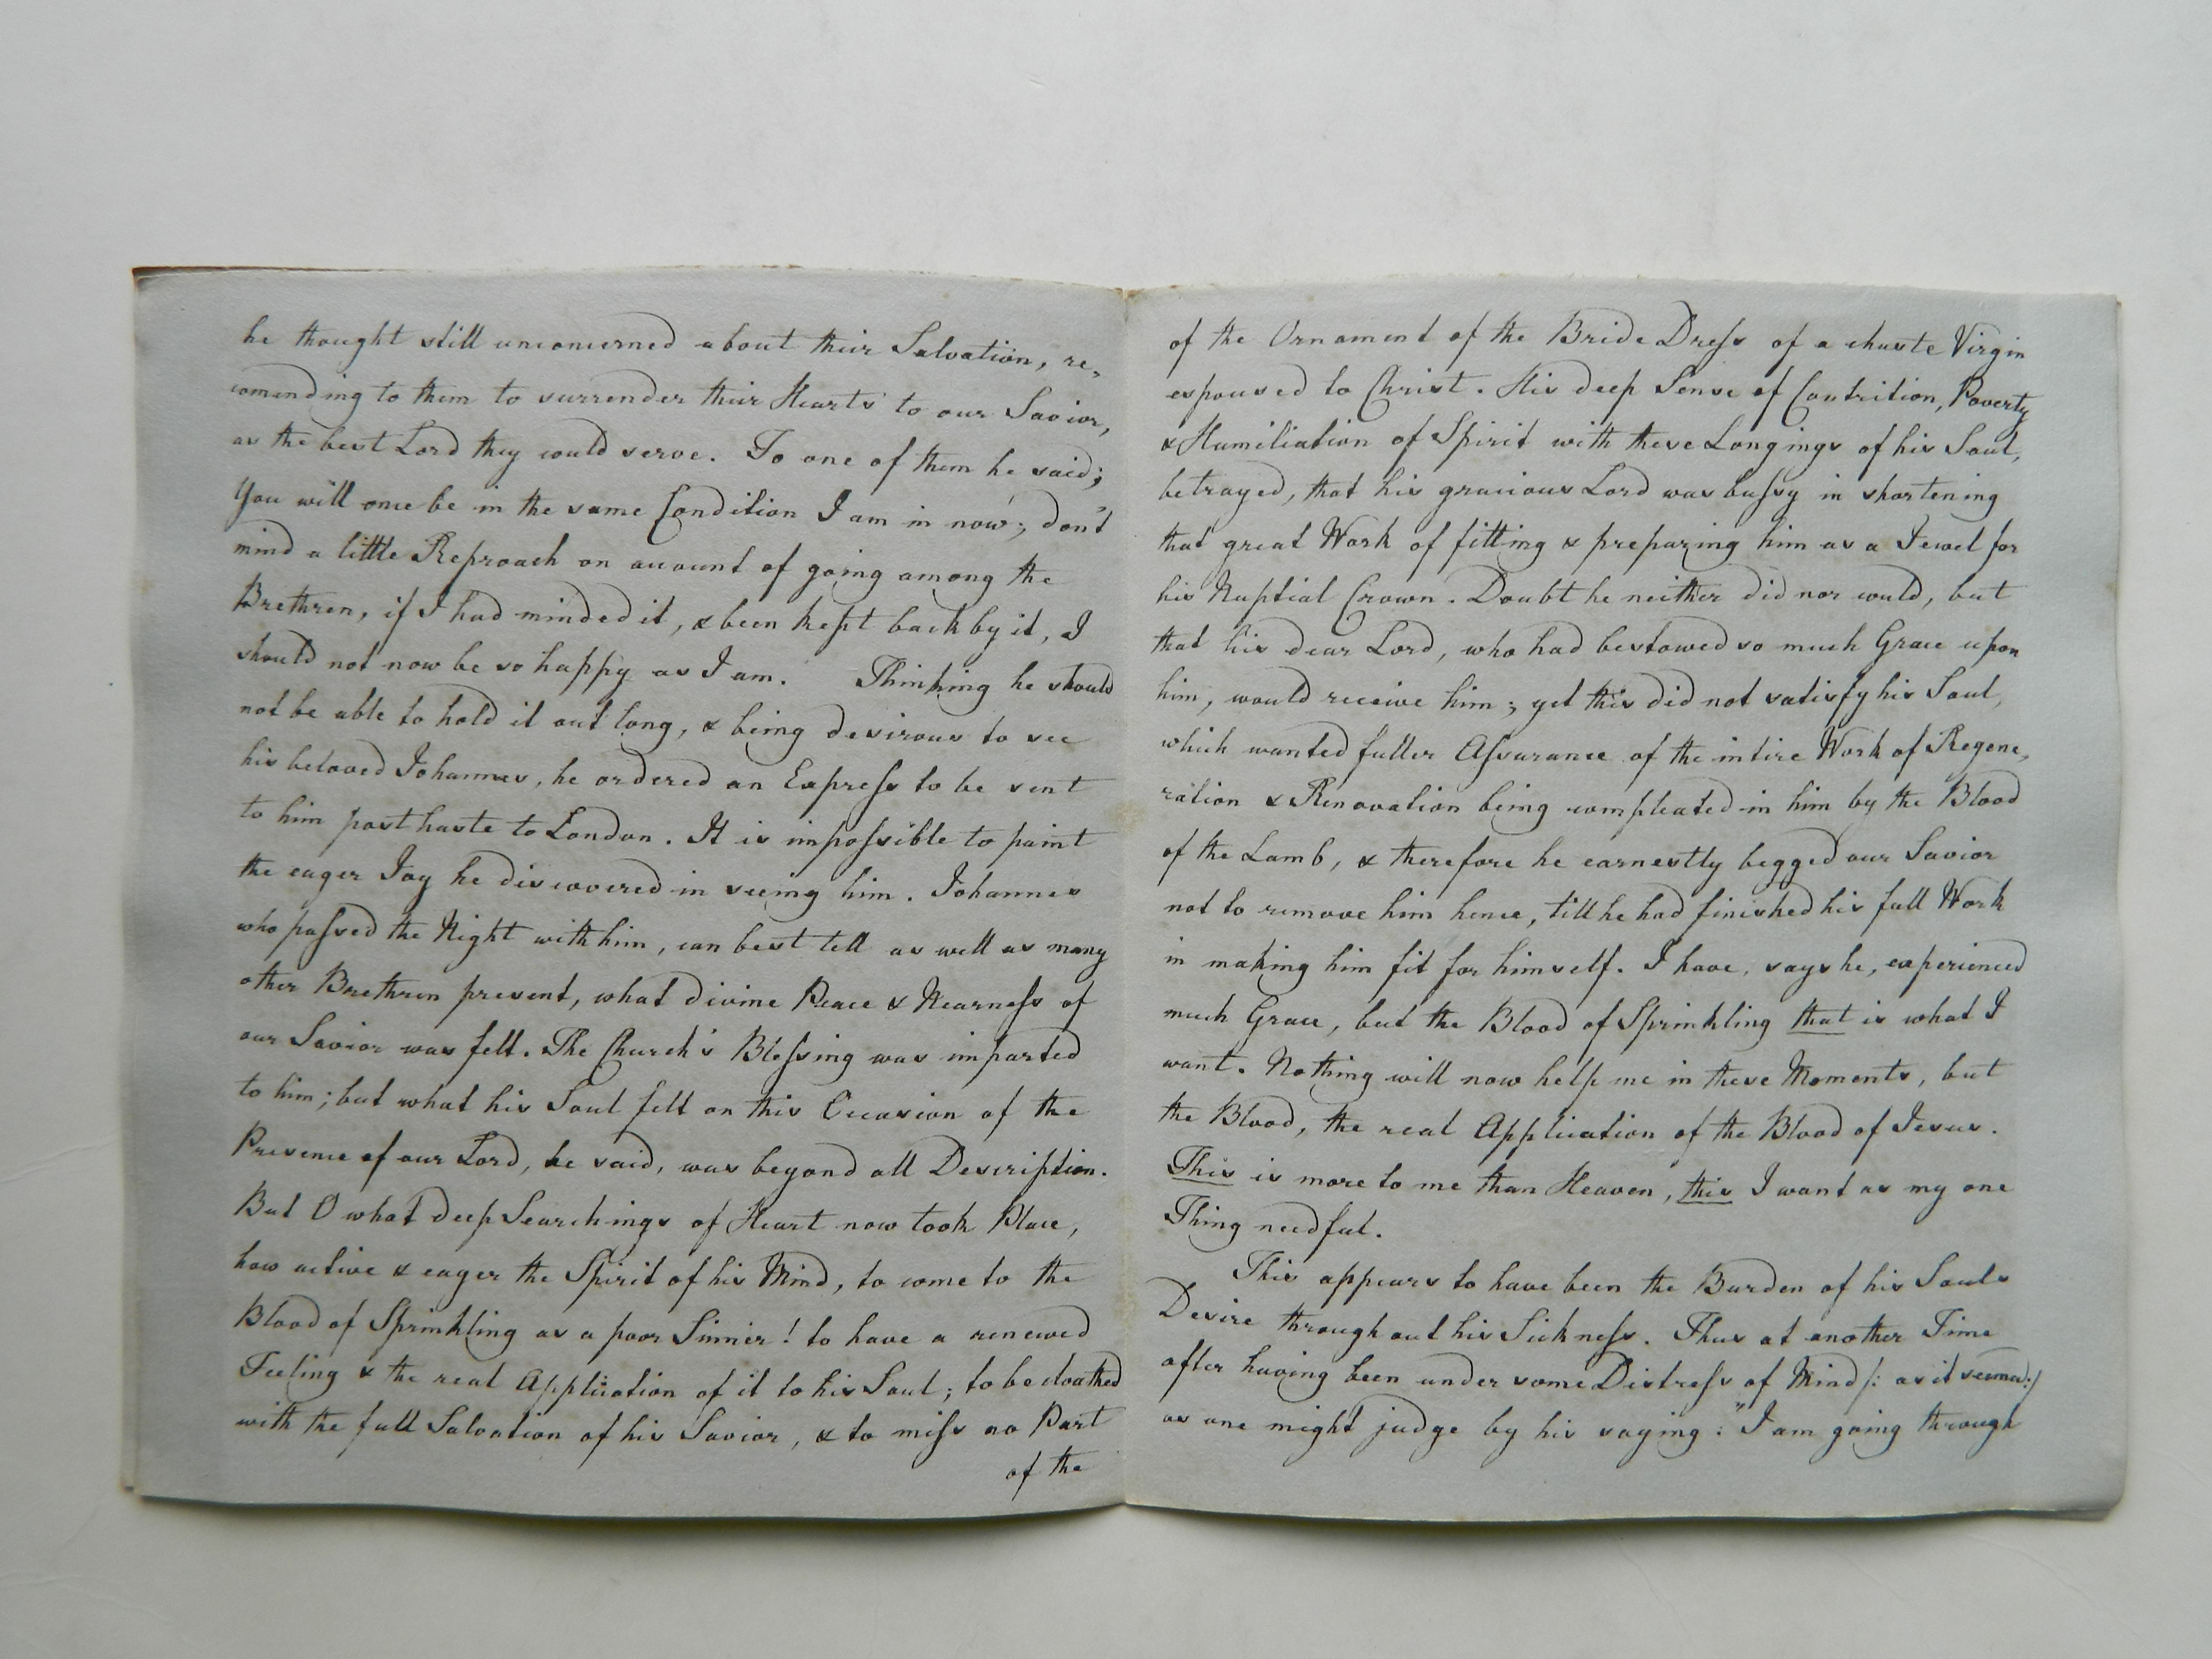 he thought still unconcerned about their Salvation, re-
comending to them to surrender their Hearts to our Savior,
as the best Lord they could serve. To one of them he said;
You will once be in the same Condition I am in now; don't
mind a little Reproach on account of going among the
Brethren, if I had minded it, & been kept back by it, I
should not now be so happy as I am. Thinking he should
not be able to hold it out long, & being desirous to see
his beloved Johannes, he ordered an Expreſs to be sent
to him post haste to London. It is impoſsible to paint
the eager Joy he discovered in seeing him. Johannes
who paſsed the Night with him, can best tell as well as many
other Brethren present, what divine Peace & Nearneſs of
our Savior was felt. The Church's Bleſsing was imparted
to him; but what his Soul felt on this Occasion of the
Presence of our Lord, he said, was beyond all Description.
But O what deep Searchings of Heart now took Place,
how active & eager the Spirit of his Mind, to come to the
Blood of Sprinkling as a poor Sinner! to have a renewed
Feeling & the real Application of it to his Soul; to be cloathed
with the full Salvation of his Savior, & to miſs no Part
of the
of the Ornament of the Bride Dreſs of a chaste Virgin
espoused to Christ. His deep Sense of Contrition, Poverty
& Humiliation of Spirit with these Longings of his Soul,
betrayed, that his gracious Lord was buſsy in shortening
that great Work of fitting & preparing him as a Jewel for
his Nuptial Crown. Doubt he neither did nor could, but
that his dear Lord, who had bestowed so much Grace upon
him, would receive him; yet this did not satisfy his Soul,
which wanted fuller Aſsurance of the intire Work of Regene-
ration & Renovation being compleated in him by the Blood
of the Lamb, & therefore he earnestly begged our Savior
not to remove him hence, till he had finished his full Work
in making him fit for himself. I have, says he, experienced
much Grace, but the Blood of Sprinkling that is what I
want. Nothing will now help me in these Moments, but
the Blood, the real Application of the Blood of Jesus.
This is more to me than Heaven, this I want as my one
Thing needful.
This appears to have been the Burden of his Souls
Desire throughout his Sickneſs. Thus at another Time
after having been under some Distreſs of Mind /: as it seems:/
as one might judge by his saying: "I am going through